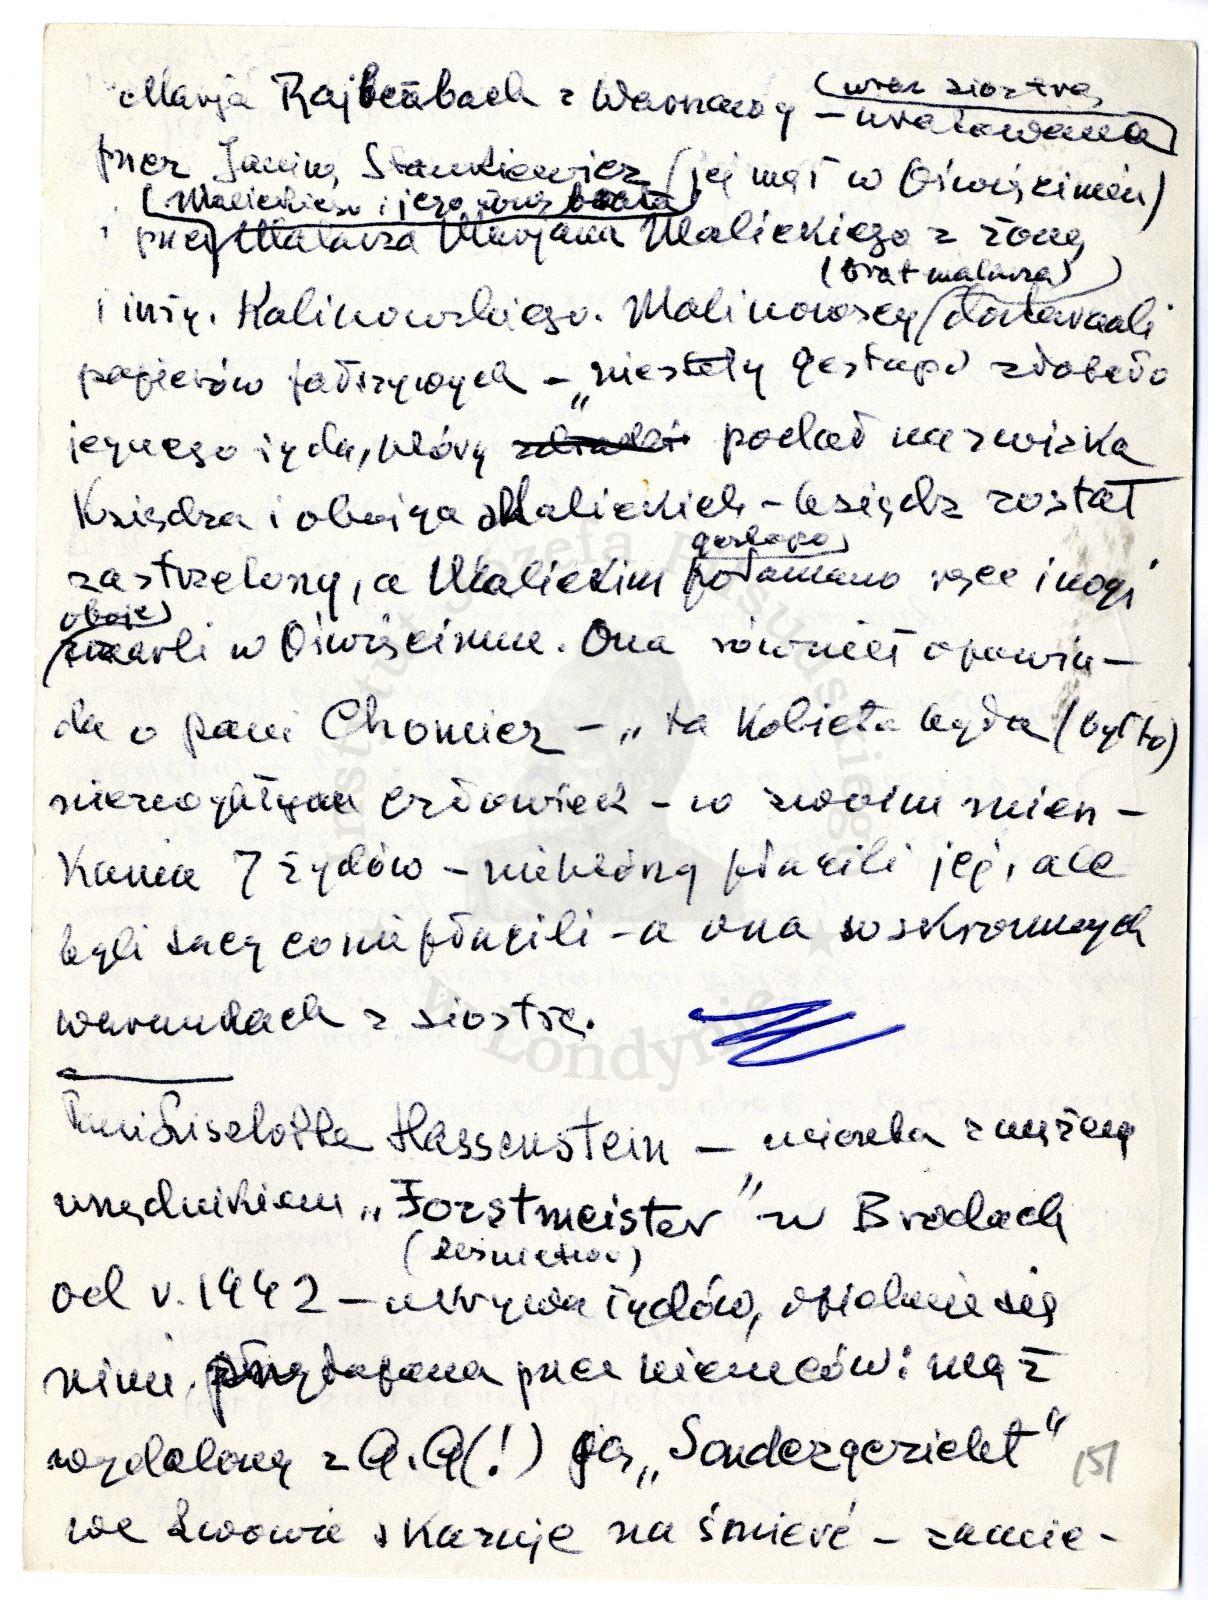 Marja Rajbenbach z Warszawy (wraz siostrą) – uratowana
przez Janinę Stankiewicz (jej mąż w Oświęcimiu)
(Malickiego i jego brata)
i przez Malarza Marjana Malickiego z żoną
(brat malarza)
i inży. Kalinowskiego. Malinowscy dostarczali
papierów fałszywych – „niestety gestapo zdobyło
jednego żyda, który podał nazwiska
Księdza i obojga Malickich – ksiądz został
gestapo
zastrzelony, a Malickim połamano ręce i nogi
oboje
zmarli w Oświęcimiu. Ona również opowia–
da o pani Chomicz – „ta Kobieta była (był to)
niezwykłym człowiek – w swoim miesz–
kaniu 7 żydów – niektórzy płacili jej, ale
byli tacy co nie płacili – a ona w skromnych
warunkach z siostrą.
Pani Liselotte Hassenstein – mieszka z mężem
urzędnikiem „Forstmeister" w Brodach
(leśnictwo)
od r. 1942 – ukrywa żydów, opiekuje się
nimi, przyłapana przez niemców: mąż
wydalony z A.A(!) ją „Sondergericht"
we Lwowie skazuje na śmierć – zamie–
151
Instytut Józefa Piłsudskiego
w Londynie